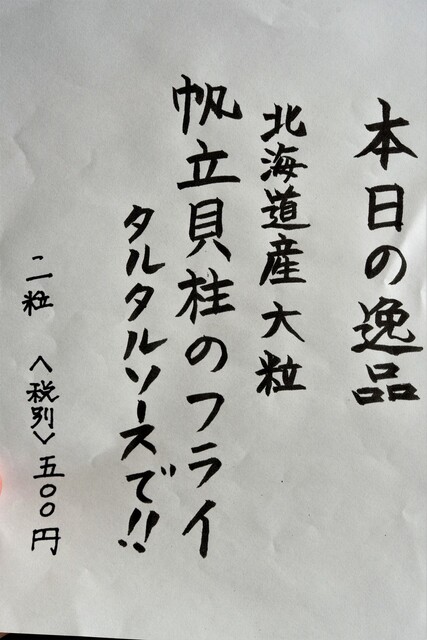 本日の逸品
北海道産大粒
帆立貝柱のフライ
タルタルソースで!!
二粒 〈税別〉五〇〇円